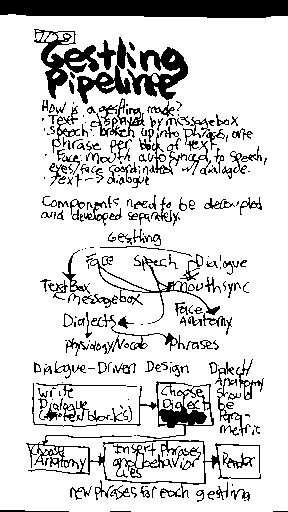 7/28
Gestling
Pipeline
How is a gestling made?
· Text: displayed by messagebox
· Speech: broken up into phrases, one
phrase per block of text.
· Face: mouth auto synced to speech,
eyes/face coordinated w/ dialogue.
· Text --> dialogue
Components need to be decoupled
and developed separately.
Gestling
Face Speech Dialogue
TextBox Mouthsync
messagebox
Face
Anatomy
Dialects
physiology/vocab Phrases
Dialogue-Driven Design
Dialect/
Anatomy
should
be
para-
metric
Write
Dialogue
(text blocks)
Choose
Dialect
Choose
Anatomy
Insert Phrases
and behavior
cues
Render
new phrases for each gestling